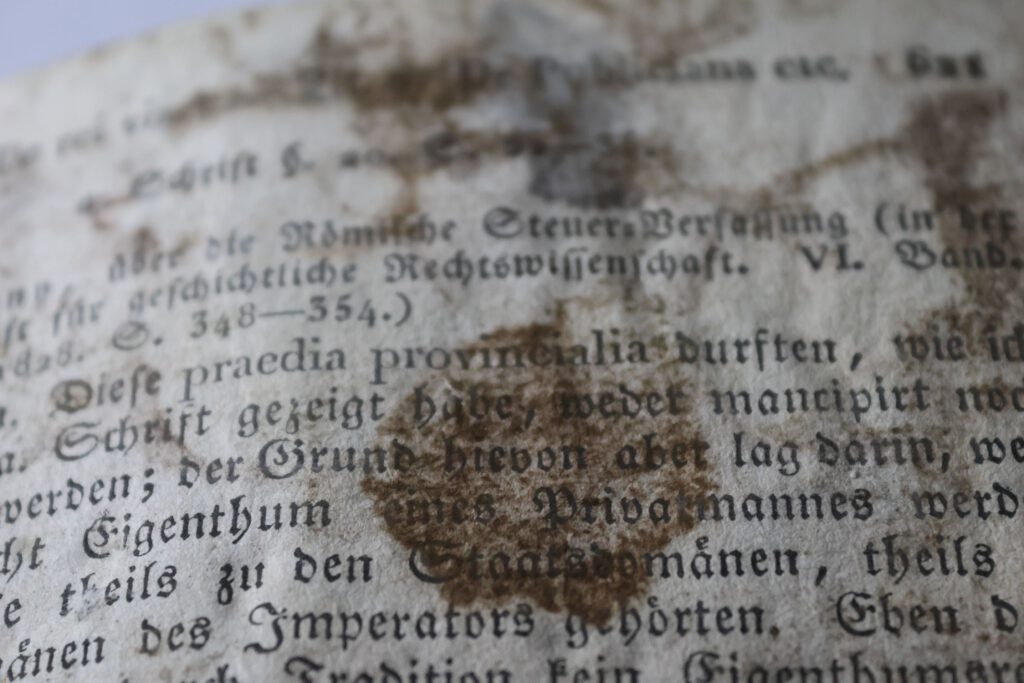 De Publiciana etc.
Schrift §.
über die Römische Steuer-Verfassung (in der
für geschichtliche Rechtswissenschaft. VI. Band.
S. 348—354.)
Diese praedia provincialia durften, wie ich
Schrift gezeigt habe, weder mancipirt noc
werden; der Grund hievon aber lag darin, we
ht Eigenthum eines Privatmannes werd
e theils zu den Staatsdomänen, theils
änen des Imperators gehörten. Eben d
Tradition kein Eigenthumsr